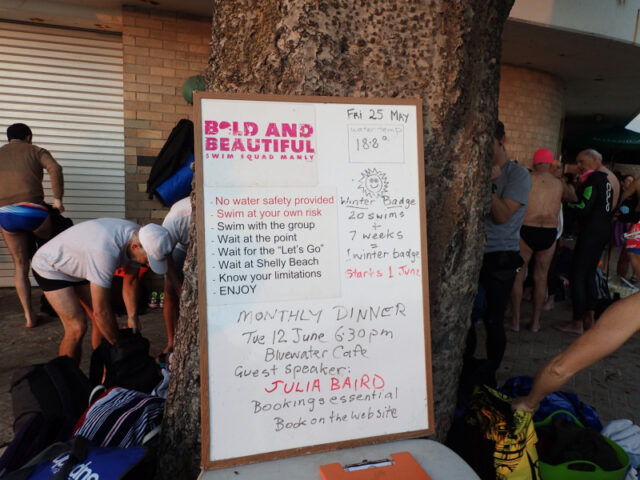 BOLD AND
BEAUTIFUL
SWIM SQUAD MANLY
FRI 25 MAY
water temp
18.8°
- No water safety provided
- Swim at your own risk
- Swim with the group
- Wait at the point
- Wait for the "Let's Go"
- Wait at Shelly Beach
- Know your limitations
- ENJOY
Winter Badge
20 swims
+
7 weeks
=
1 winter badge
Starts 1 June
MONTHLY DINNER
Tue 12 June 6.30pm
Bluewater Cafe
Guest speaker:
JULIA BAIRD
Bookings essential
Book on the website